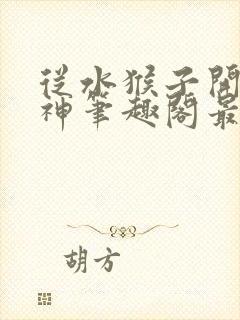 從水猴子開
神筆趣閣最
胡方